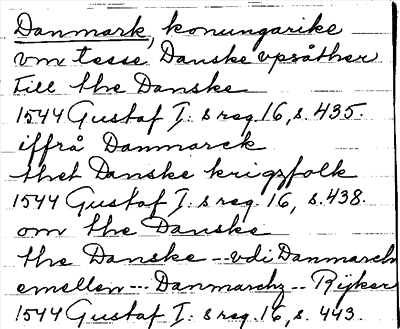 Danmark, konungarike
vm tesse Danske vpsåther
till the Danske
1544 Gustaf I: s reg. 16, s. 435.
iffrå Danmarck
thet Danske krigsfolk
1544 Gustaf I: s reg. 16, s. 438.
om the Danske
the Danske -- vdi Danmarch
emellen --- Danmarchz -- Rijker
1544 Gustaf I: s reg. 16, s. 443.